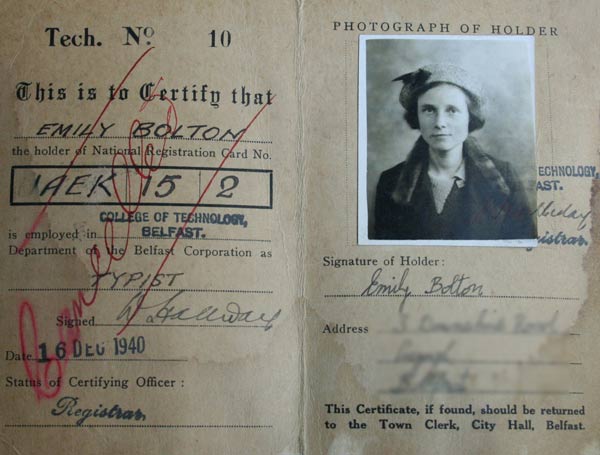 Tech. No. 10
This is to Certify that
EMILY BOLTON
the holder of National Registration Card No.
AEK 15 2
COLLEGE OF TECHNOLOGY,
is employed in BELFAST.
Department of the Belfast Corporation as
TYPIST
Signed
Date 16 DEC 1940
Status of Certifying Officer :
Registrar
Cancelled
PHOTOGRAPH OF HOLDER
TECHNOLOGY,
AST.
Registrar
Signature of Holder :
Emily Bolton
Address
This Certificate, if found, should be returned
to the Town Clerk, City Hall, Belfast.